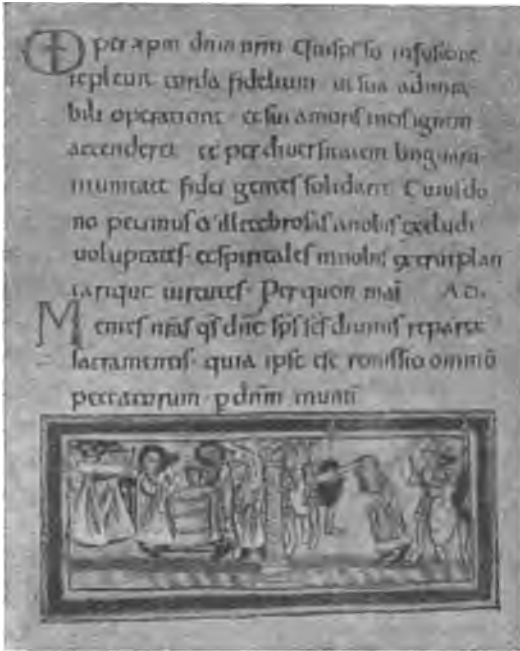 per xpm dnm nrm Qui sps sci infusione
repleuit corda fidelium ut sua admira
bili operatione et sui amoris in eis ignem
accenderet et per diuersitatem linguarum
in unitate fidei gentes solidaret Cuius do
no petimus & illecebrosas a nobis excludi
uoluptates et spiritales in nobis extrui plan
tarique uirtutes Per quem mai AD
Mentes nras qs dne sps scs diuinis reparet
sacramentis quia ipse est remissio omniu
peccatorum p dnm in uniti